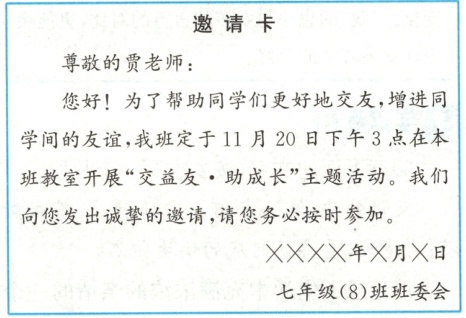 邀请卡
尊敬的贾老师:
您好!为了帮助同学们更好地交友,增进同
学间的友谊,我班定于11月20日下午3点在本
班教室开展“交益友·助成长”主题活动。我们
向您发出诚挚的邀请,请您务必按时参加。
××××年×月×日
七年级(8)班班委会